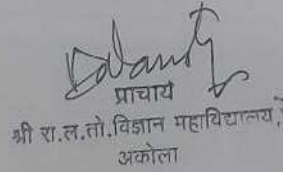 प्राचार्य
श्री रा.ल.तो.विज्ञान महाविद्यालय,
अकोला